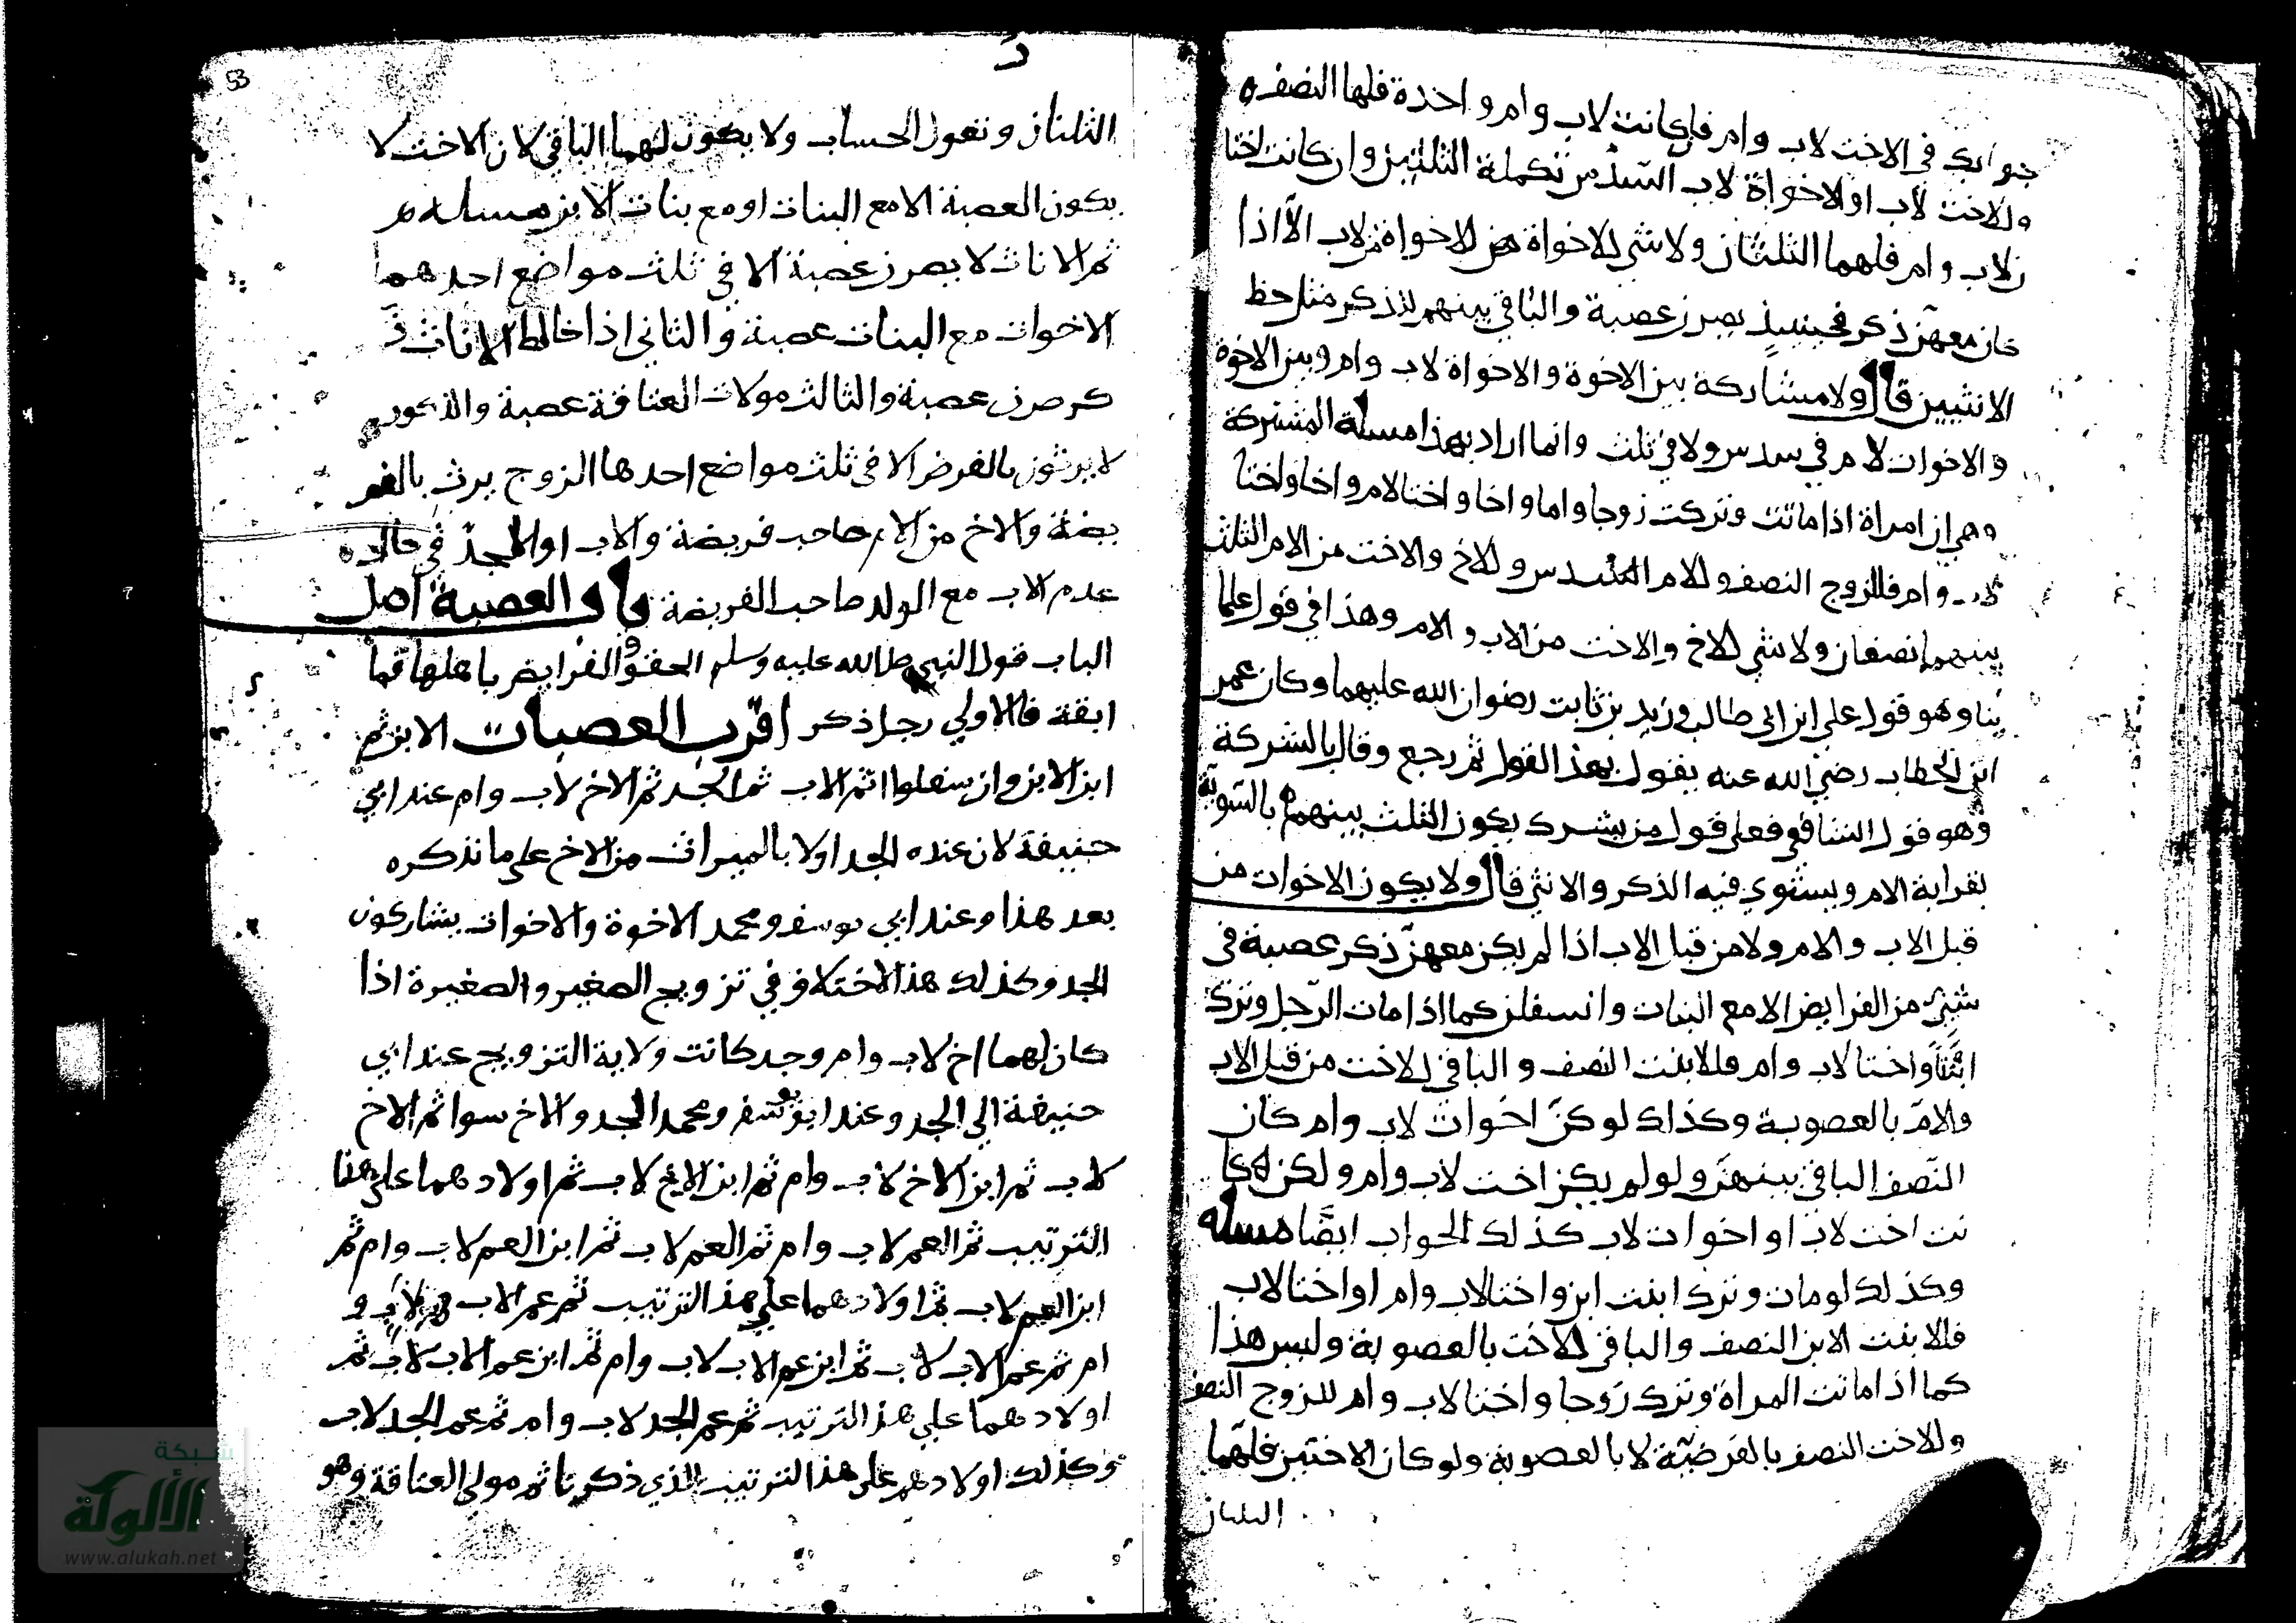 جوابك في الاخت لاب وام فان كانت لاب وام واحدة فلها النصف
وللاخت لاب او الاخواة لاب السدس تكملة الثلثين وان كانت اختا
ن لاب وام فلهما الثلثان ولا شي للاخواة من الاخواة لاب الا اذا
كان معهن ذكر فحينيذ يصرن عصبة والباقي بينهم للذكر مثل حظ
الانثيين قال ولا مشاركة بين الاخوة والاخواة لاب وام وبين الاخوة
والاخوات لام في سدس ولا في ثلث وانما اراد بهذا مسلة المشتركة
وهي ان امراة اذا ماتت وتركت زوجا واما واخا واختا لام واخا واختا
لاب وام فللزوج النصف وللام السدس وللاخ والاخت من الام الثلث
بينهما نصفان ولا شي للاخ والاخت من الاب والام وهذا في قول علما
ينا وهو قول علي ابن ابي طالب وزيد بن ثابت رضوان الله عليهما وكان عمر
ابن الخطاب رضي الله عنه يقول بهذا القول ثم رجع وقال بالشركة
وهو قول الشافعي فعلى قول من يشرك يكون الثلث بينهم بالسوية
بقرابة الام ويستوي فيه الذكر والانثي قال ولا يكون الاخوات من
قبل الاب والام ولا من قبل الاب اذا لم يكن معهن ذكر عصبة في
شيئ من الفرايض الا مع البنات وان سفلن كما اذا مات الرجل وترك
ابنتا واختا لاب وام فللابنت النصف والباقي للاخت من قبل الاب
والام بالعصوبة وكذلك لو كن اخوات لاب وام كان
النصف الباقي بينهن ولو لم يكن اخت لاب وام ولكن كا
نت اخت لاب او اخوات لاب كذلك الجواب ايضا مسله
وكذلك لو مات وترك ابنت ابن واختا لاب وام او اختا لاب
فللابنت الابن النصف والباقي للاخت بالعصوبة وليس هذا
كما اذا ماتت المراة وترك زوجا واختا لاب وام للزوج النصف
وللاخت النصف بالفرضية لا بالعصوبة ولو كان الاختين فلهما
الثلثان
53
الثلثان وتعول الحساب ولا يكون لهما الباقي لان الاخت لا
يكون العصبة الا مع البنات او مع بنات الابن مسله
ثم الاناث لا يصرن عصبة الا في ثلث مواضع احدهما
الاخوات مع البنات عصبة والثاني اذا خالط الاناث ذ
كر صرن عصبة والثالث مولات العتاقة عصبة والذكور
لا يرثون بالفرض الا في ثلث مواضع احدها الزوج يرث بالفر
يضة والاخ من الام صاحب فريضة والاب او الجد في حال
عدم الاب مع الولد صاحب الفريضة باب العصبة اصل
الباب قول النبي صلى الله عليه وسلم الحقوا الفرايض باهلها فما
ابقة فالاولي رجل ذكر اقرب العصبات الابن ثم
ابن الابن وان سفلوا ثم الاب ثم الجد ثم الاخ لاب وام عند ابي
حنيفة لان عنده الجد اولا بالميراث من الاخ على ما نذكره
بعد هذا وعند ابي يوسف ومحمد الاخوة والاخوات يشاركون
الجد وكذلك هذا الاختلاف في تزويج الصغير والصغيرة اذا
كان لهما اخ لاب وام وجد كانت ولاية التزويج عند ابي
حنيفة الي الجد وعند ابي يوسف ومحمد الجد والاخ سوا ثم الاخ
لاب ثم ابن الاخ لاب وام ثم ابن الاخ لاب ثم اولادهما على هذا
الترتيب ثم العم لاب وام ثم العم لاب ثم ابن العم لاب وام ثم
ابن العم لاب ثم اولادهما علي هذا الترتيب ثم عم الاب لاب و
ام ثم عم الاب لاب ثم ابن عم الاب لاب وام ثم ابن عم الاب لاب ثم
اولادهما علي هذا الترتيب ثم عم الجد لاب وام ثم عم الجد لاب
وكذلك اولادهم على هذا الترتيب الذي ذكرنا ثم مولي العتاقة وهو
شبكة
الألوكة
www.alukah.net